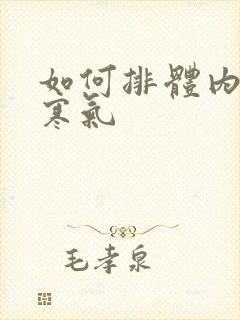 如何排體內
寒氣
毛孝泉